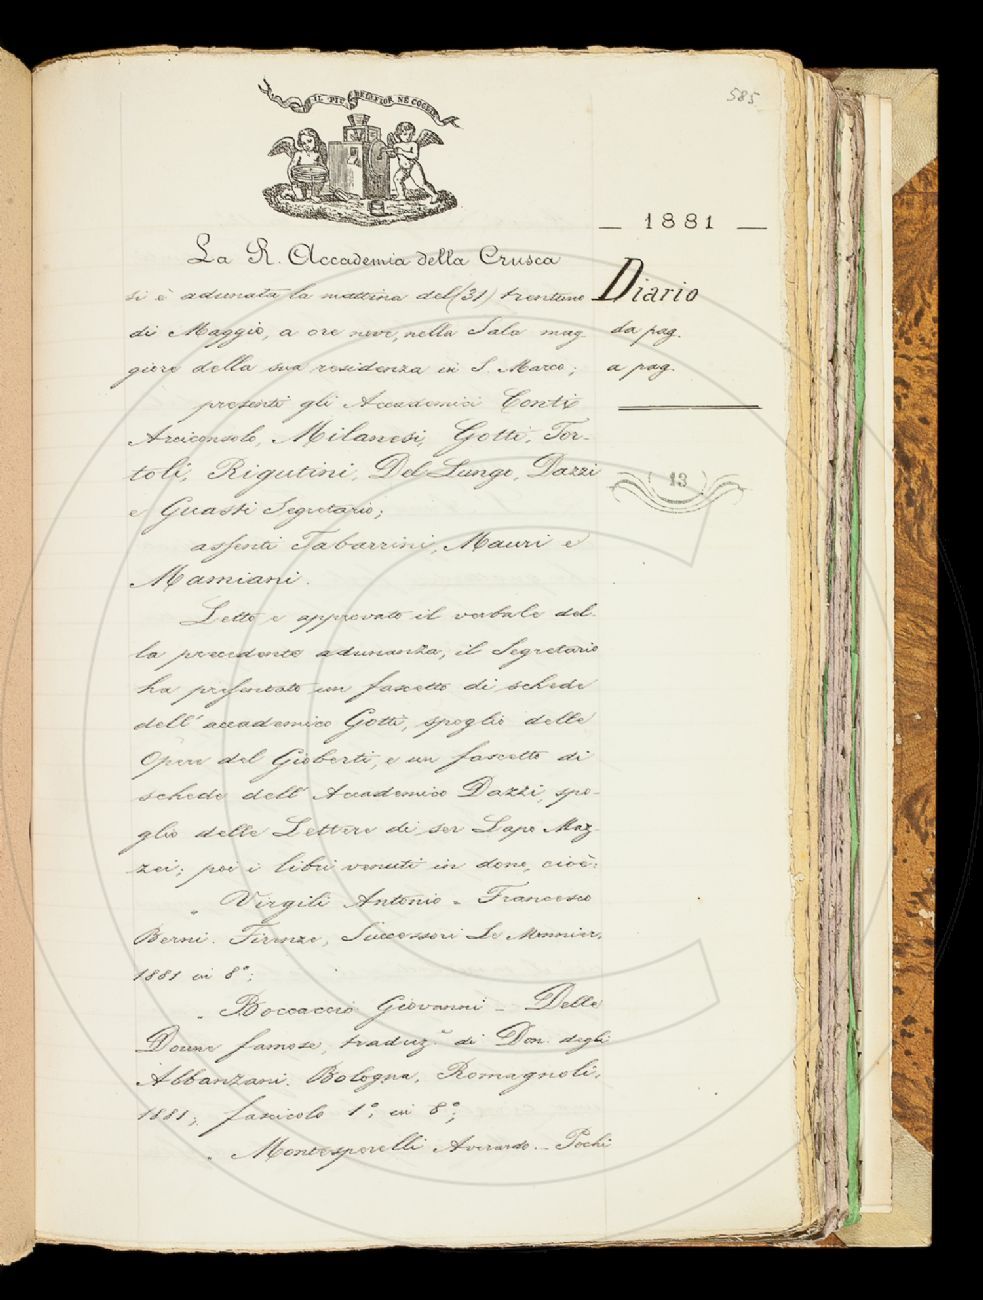 585
IL PIÙ BEL FIOR NE COGLIE
— 1881 —
La R. Accademia della Crusca
Diario
si è adunata la mattina del (31) trentuno
da pag.
di Maggio, a ore nove, nella Sala mag
a pag.
giore della sua residenza in S. Marco;
presenti gli Accademici Conti
Arciconsolo, Milanesi, Gotti, Tor-
toli, Rigutini, Del Lungo, Dazzi
(13)
e Guasti Segretario;
assenti Tabarrini, Mauri e
Mamiani.
Letto e approvato il verbale del-
la precedente adunanza, il Segretario
ha presentato un fascetto di schede
dell'accademico Gotti, spoglio delle
Opere del Gioberti, e un fascetto di
schede dell'Accademico Dazzi, spo-
glio delle Lettere di ser Lapo Maz-
zei; poi i libri venuti in dono, cioè:
„ Virgili Antonio - Francesco
Berni. Firenze, Successori Le Monnier,
1881 in 8°;
„ Boccaccio Giovanni - Delle
Donne famose, traduz. di Don. degli
Albanzani. Bologna, Romagnoli,
1881; fascicolo 1°; in 8°;
„ Montesperelli Averardo - Pochi